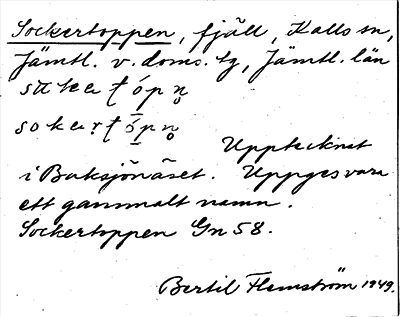 Sockertoppen, fjäll, Kalls sn,
Jämtl. v. doms. tg, Jämtl. län
sɷkaʈópn̥
sokarʈópn̥
Upptecknat
i Baksjönäset. Uppges vara
ett gammalt namn.
Sockertoppen Gn 58.
Bertil Flemström 1949.